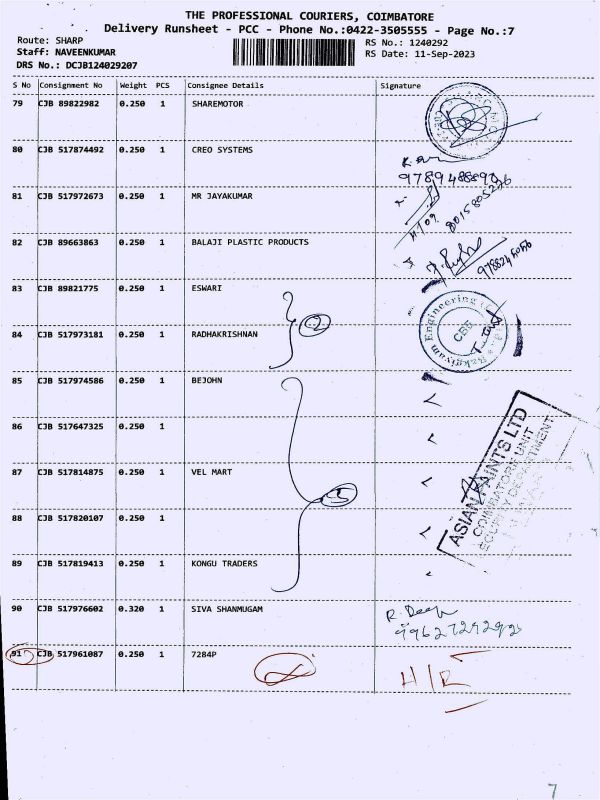 THE PROFESSIONAL COURIERS, COIMBATORE
Delivery Runsheet - PCC - Phone No.:0422-3505555 - Page No.:7
Route: SHARP
Staff: NAVEENKUMAR
DRS No.: DCJB124029207
RS No.: 1240292
RS Date: 11-Sep-2023
S No Consignment No Weight PCS Consignee Details Signature
79 CJB 89822982 0.250 1 SHAREMOTOR
80 CJB 517874492 0.250 1 CREO SYSTEMS
81 CJB 517972673 0.250 1 MR JAYAKUMAR
8015805226
82 CJB 89663863 0.250 1 BALAJI PLASTIC PRODUCTS
83 CJB 89821775 0.250 1 ESWARI
84 CJB 517973181 0.250 1 RADHAKRISHNAN
2
Engineering
CBE
85 CJB 517974586 0.250 1 BEJOHN
86 CJB 517647325 0.250 1
87 CJB 517814875 0.250 1 VEL MART
5
ASIAN PAINTS LTD
COIMBATORE UNIT
SECURITY DEPARTMENT
88 CJB 517820107 0.250 1
89 CJB 517819413 0.250 1 KONGU TRADERS
90 CJB 517976602 0.320 1 SIVA SHANMUGAM
91 CJB 517961087 0.250 1 7284P
H/R
7